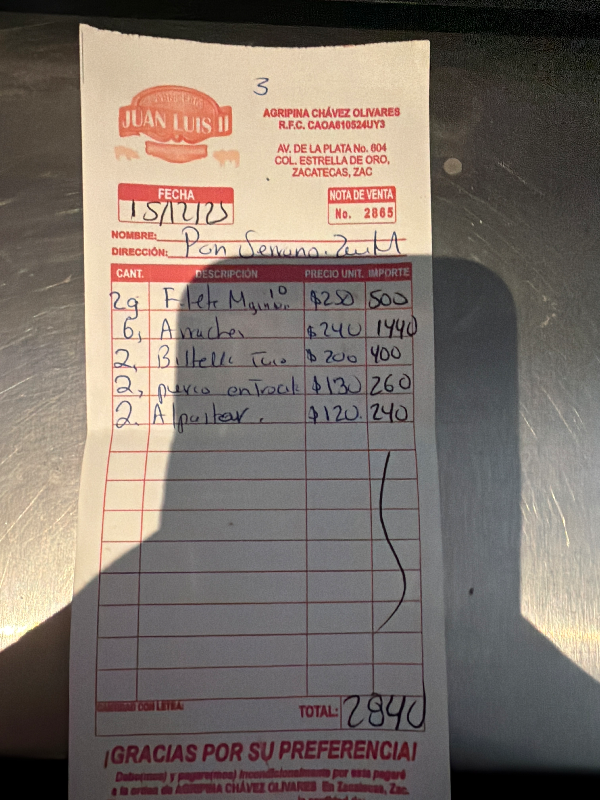 3
JUAN LUIS II
AGRIPINA CHÁVEZ OLIVARES
R.F.C. CAOA610524UY3
AV. DE LA PLATA No. 604
COL. ESTRELLA DE ORO,
ZACATECAS, ZAC
FECHA
15/12/25
NOTA DE VENTA
No. 2865
NOMBRE:
DIRECCIÓN: Pan Serrano
CANT. DESCRIPCIÓN PRECIO UNIT. IMPORTE
2 Filete $250 500
6, Arrachera $240 1440
2, $200 400
2, puerco $130 260
2. Al pastor. $120. 240
CANTIDAD CON LETRA:
TOTAL: 2840
¡GRACIAS POR SU PREFERENCIA!
Debo(mos) y pagaré(mos) incondicionalmente por este pagaré
a la orden de AGRIPINA CHÁVEZ OLIVARES En Zacatecas, Zac.